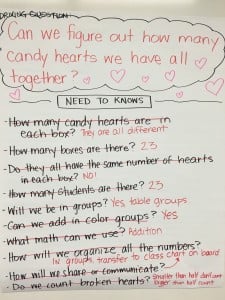 DRIVING QUESTION
Can we figure out how many
candy hearts we have all
together?
NEED TO KNOWS
- How many candy hearts are in
each box? They are all different
- How many boxes are there? 23
- Do they all have the same number of hearts
in each box? NO!
- How many students are there? 23
- Will we be in groups? Yes, table groups
- Can we add in color groups? Yes
- What math can we use? Addition
- How will we organize all the numbers?
In groups, transfer to class chart on board
- How will we share or communicate?
- Do we count broken hearts? Smaller than half don't count
larger than half count